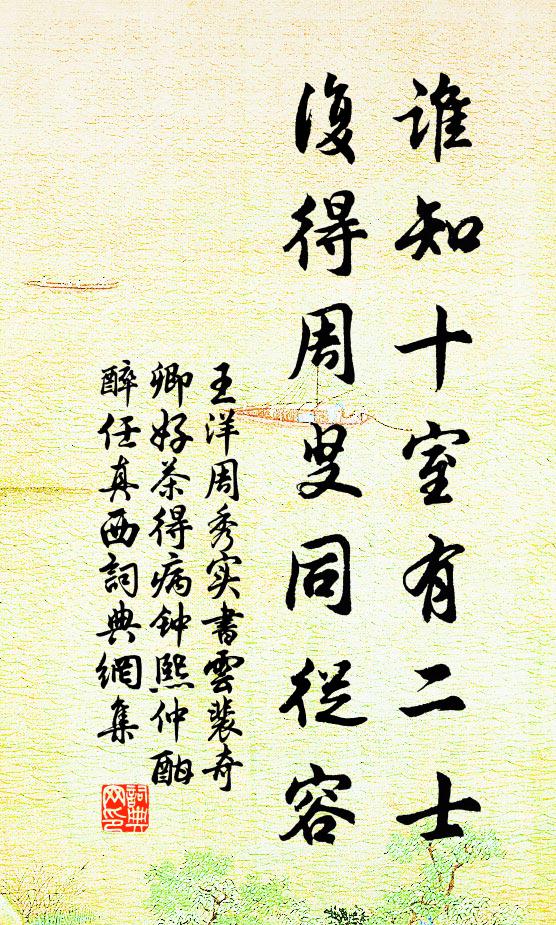 谁知十室有二士
復得周叟同從容
王洋周秀实書雲裴奇
卿好茶得病钟熙仲酣
醉任真西詞典網集
詞典网印